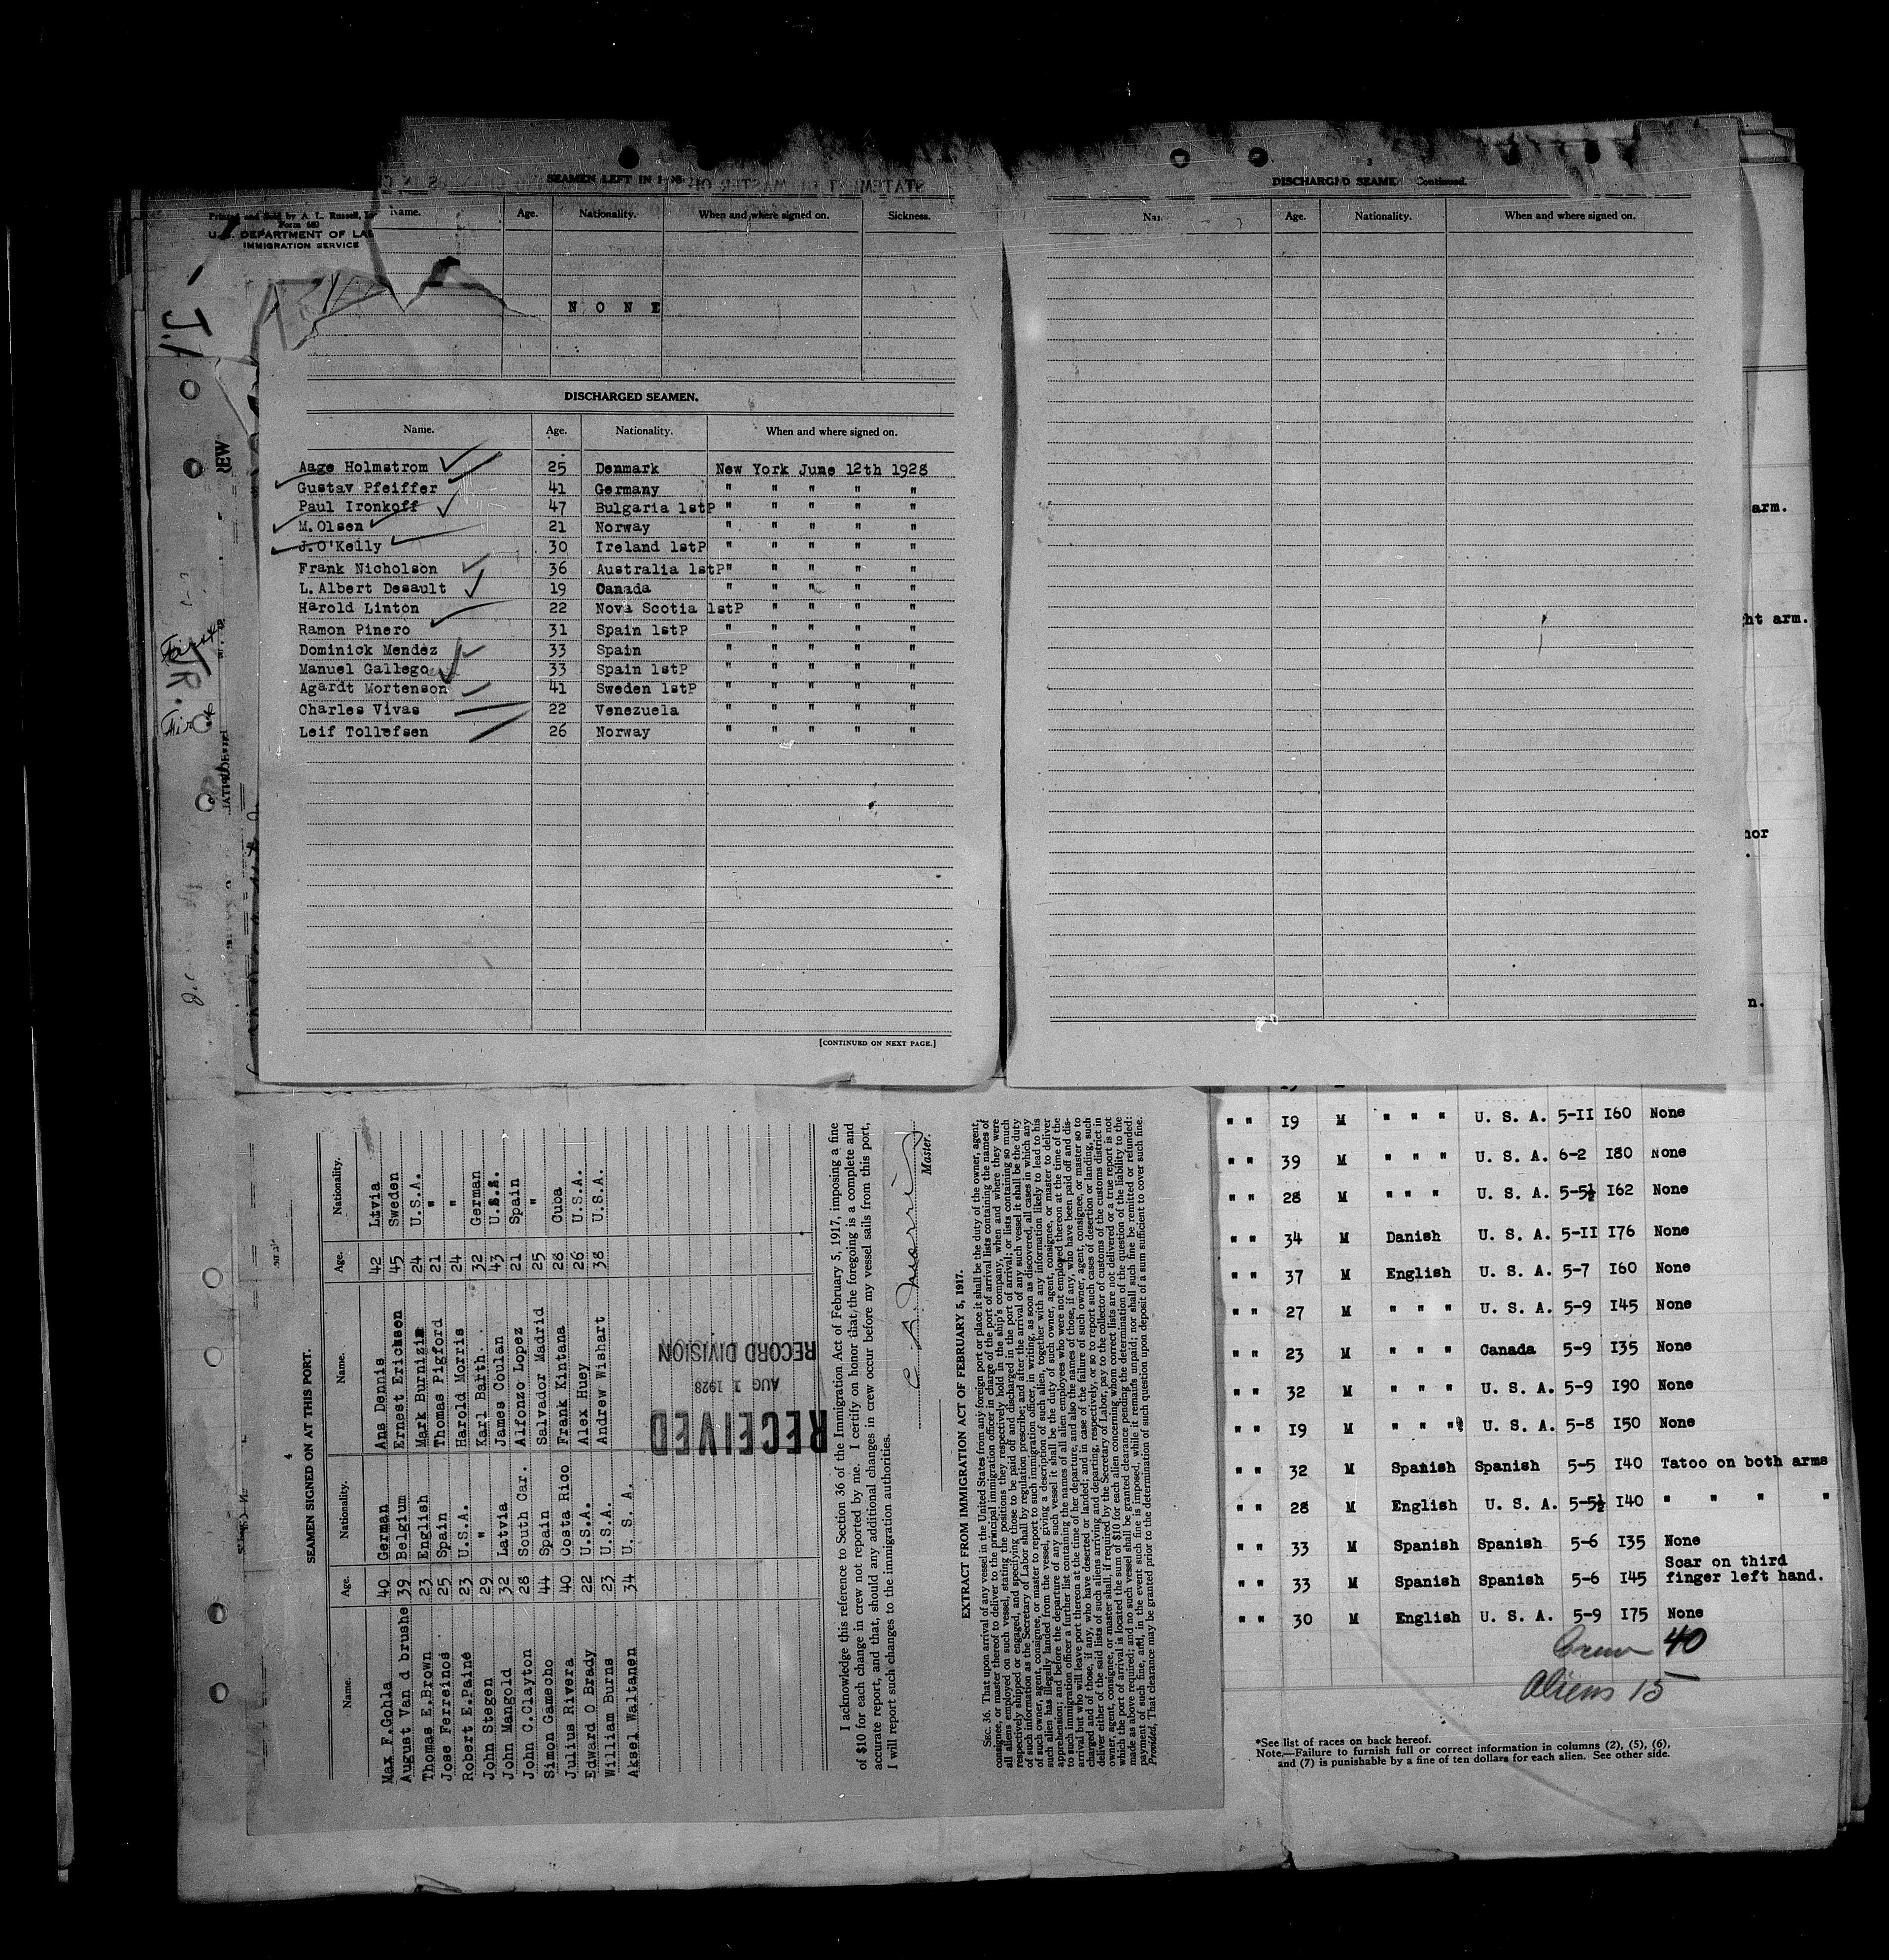 Printed and Sold by A. L. Russell,
Form 680
U.S. DEPARTMENT OF LAB
IMMIGRATION SERVICE
SEAMEN LEFT IN
Name. Age. Nationality. When and where signed on. Sickness.
N O N E
DISCHARGED SEAMEN.
Name. Age. Nationality. When and where signed on.
Aage Holmstrom 25 Denmark New York June 12th 1928
Gustav Pfeiffer 41 Germany " " " " "
Paul Ironkoff 47 Bulgaria 1stP " " " " "
M.Olsen 21 Norway " " " " "
J.O'Kelly 30 Ireland 1stP " " " " "
Frank Nicholson 36 Australia 1stP" " " " "
L.Albert Desault 19 Canada " " " " "
Harold Linton 22 Nova Scotia 1stP " " " "
Ramon Pinero 31 Spain 1stP " " " " "
Dominick Mendez 33 Spain " " " " "
Manuel Gallego 33 Spain 1stP " " " " "
Agardt Mortenson 41 Sweden 1stP " " " " "
Charles Vivas 22 Venezuela " " " " "
Leif Tollefsen 26 Norway " " " " "
[CONTINUED ON NEXT PAGE.]
3
DISCHARGED SEAMEN Continued.
Age. Nationality. When and where signed on.
arm.
ht arm.
nor
n.
4
SEAMEN SIGNED ON AT THIS PORT.
Name. Age. Nationality. Name. Age. Nationality.
Max F.Gohla 40 German Ans Dennis 42 Livia
August Van d brushe 39 Belgium Ernest Ericksen 45 Sweden
Thomas E.Brown 23 English Mark Burnizis 24 U.S.A.
Jose Ferreinos 25 Spain Thomas Pigford 21 "
Robert E.Paine 23 U.S.A. Harold Morris 24 "
John Stegen 29 " Karl Barth. 32 German
John Mangold 32 Latvia James Coulan 43 U.S.S.
John C.Clayton 28 South Car. Alfonzo Lopez 21 Spain
Simon Gamecho 44 Spain Salvador Madrid 25 "
Julius Rivera 40 Costa Rico Frank Kintana 28 Cuba
Edward O Brady 22 U.S.A. Alex Huey 26 U.S.A.
William Burns 23 U.S.A. Andrew Wishart 38 U.S.A.
Aksel Waltanen 34 U. S. A.
RECEIVED
AUG 1 1928
RECORD DIVISION
I acknowledge this reference to Section 36 of the Immigration Act of February 5, 1917, imposing a fine
of $10 for each change in crew not reported by me. I certify on honor that the foregoing is a complete and
accurate report, and that, should any additional changes in crew occur before my vessel sails from this port,
I will report such changes to the immigration authorities.
Master.
EXTRACT FROM IMMIGRATION ACT OF FEBRUARY 5, 1917.
SEC. 36. That upon arrival of any vessel in the United States from any foreign port or place it shall be the duty of the owner, agent,
consignee, or master thereof to deliver to the principal immigration officer in charge of the port of arrival lists containing the names of
all aliens employed on such vessel, stating the positions they respectively hold in the ship's company, when and where they were
respectively shipped or engaged, and specifying those to be paid off and discharged in the port of arrival; or lists containing so much
of such information as the Secretary of Labor shall by regulation prescribe; and after the arrival of any such vessel it shall be the duty
of such owner, agent, consignee, or master to report to such immigration officer, in writing, as soon as discovered, all cases in which any
such alien has illegally landed from the vessel, giving a description of such alien, together with any information likely to lead to his
apprehension; and before the departure of any such vessel it shall be the duty of such owner, agent, consignee, or master to deliver
to such immigration officer a further list containing the names of all alien employees who were not employed thereon at the time of the
arrival but who will leave port thereon at the time of her departure, and also the names of those, if any, who have been paid off and dis-
charged and of those, if any, who have deserted or landed; and in case of the failure of such owner, agent, consignee, or master so to
deliver either of the said lists of such aliens arriving and departing, respectively, or so to report such cases of desertion or landing, such
owner, agent, consignee, or master shall, if required by the Secretary of Labor, pay to the collector of customs of the customs district in
which the port of arrival is located the sum of $10 for each alien concerning whom correct lists are not delivered or a true report is not
made as above required; and no such vessel shall be granted clearance pending the determination of the question of the liability to the
payment of such fine, and, in the event such fine is imposed, while it remains unpaid; nor shall such fine be remitted or refunded:
Provided, That clearance may be granted prior to the determination of such question upon deposit of a sum sufficient to cover such fine.
" " 19 M " " " U. S. A. 5-II I60 None
" " 39 M " " " U. S. A. 6-2 I80 None
" " 28 M " " " U. S. A. 5-5½ I62 None
" " 34 M Danish U. S. A. 5-II I76 None
" " 37 M English U. S. A. 5-7 I60 None
" " 27 M " " " U. S. A. 5-9 I45 None
" " 23 M " " " Canada 5-9 I35 None
" " 32 M " " " U. S. A. 5-9 I90 None
" " I9 M " " " U. S. A. 5-8 I50 None
" " 32 M Spanish Spanish 5-5 I40 Tatoo on both arms
" " 28 M English U. S. A. 5-5½ I40 " " " "
" " 33 M Spanish Spanish 5-6 I35 None
" " 33 M Spanish Spanish 5-6 I45 Scar on third
finger left hand.
" " 30 M English U. S. A. 5-9 I75 None
Crew 40
Aliens 15
*See list of races on back hereof.
Note.—Failure to furnish full or correct information in columns (2), (5), (6),
and (7) is punishable by a fine of ten dollars for each alien. See other side.